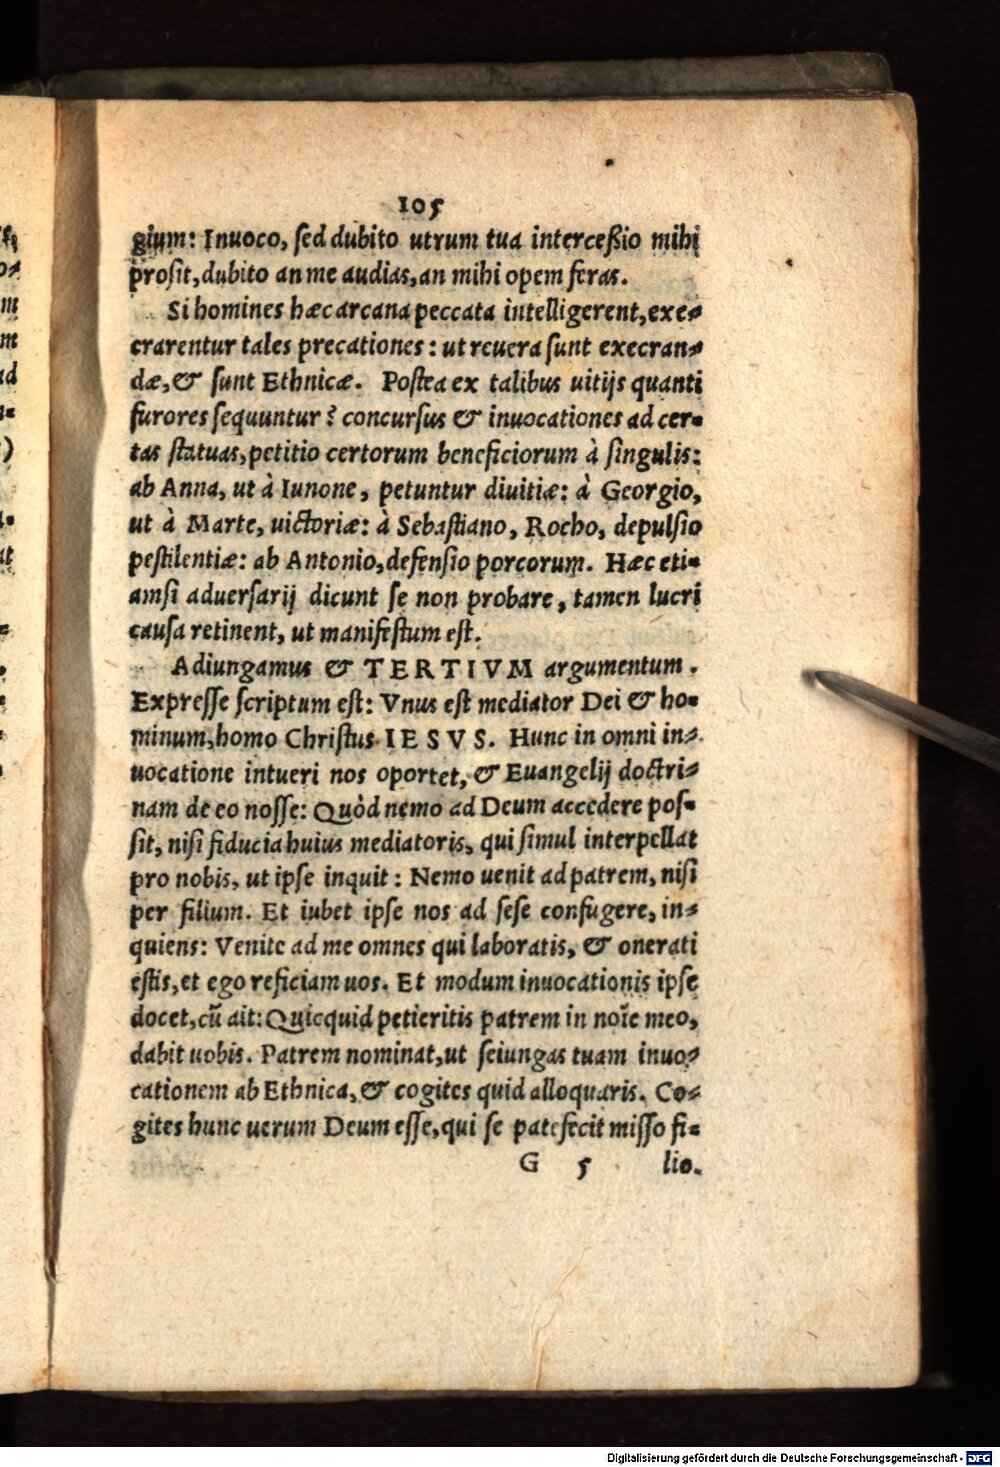 105
gium: Inuoco, sed dubito utrum tua interceßio mihi
prosit, dubito an me audias, an mihi opem feras.
Si homines hæc arcana peccata intelligerent, exe-
crarentur tales precationes: ut reuera sunt execran-
dæ, & sunt Ethnicæ. Postea ex talibus uitijs quanti
furores sequuntur? concursus & inuocationes ad cer-
tas statuas, petitio certorum beneficiorum à singulis:
ab Anna, ut à Iunone, petuntur diuitiæ: à Georgio,
ut à Marte, uictoriæ: à Sebastiano, Rocho, depulsio
pestilentiæ: ab Antonio, defensio porcorum. Hæc eti-
amsi aduersarij dicunt se non probare, tamen lucri
causa retinent, ut manifestum est.
Adiungamus & TERTIVM argumentum.
Expresse scriptum est: Vnus est mediator Dei & ho-
minum, homo Christus IESVS. Hunc in omni in-
uocatione intueri nos oportet, & Euangelij doctri-
nam de eo nosse: Quòd nemo ad Deum accedere pos-
sit, nisi fiducia huius mediatoris, qui simul interpellat
pro nobis, ut ipse inquit: Nemo uenit ad patrem, nisi
per filium. Et iubet ipse nos ad sese confugere, in-
quiens: Venite ad me omnes qui laboratis, & onerati
estis, et ego reficiam uos. Et modum inuocationis ipse
docet, cũ ait: Quicquid petieritis patrem in noĩe meo,
dabit uobis. Patrem nominat, ut seiungas tuam inuo-
cationem ab Ethnica, & cogites quid alloquaris. Co-
gites hunc uerum Deum esse, qui se patefecit misso fi-
G 5 lio.
Digitalisierung gefördert durch die Deutsche Forschungsgemeinschaft - DFG